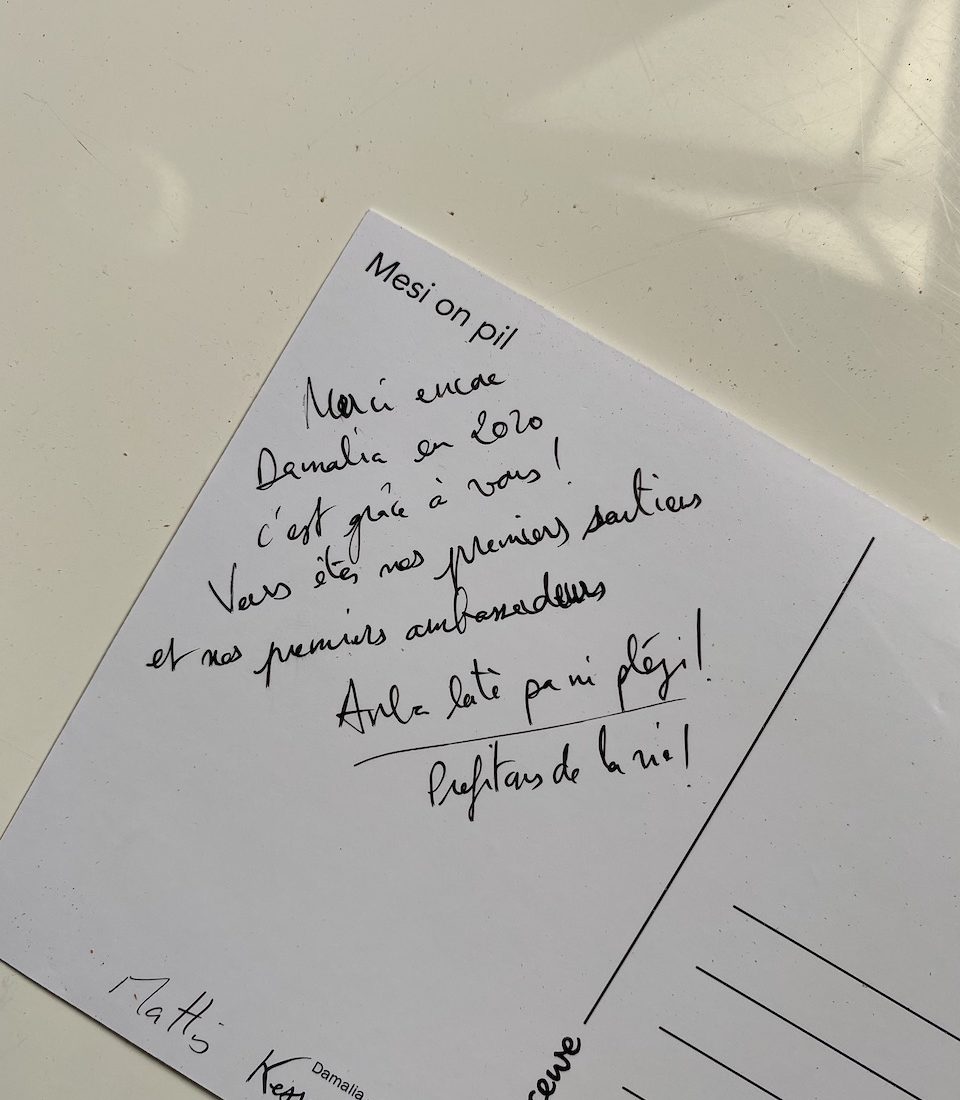 Mesi on pil
Merci encore
Damalia en 2020
c'est grâce à vous !
Vous êtes nos premiers soutiens
et nos premiers ambassadeurs
Anba latè pa ni plézi !
Profitons de la vie !
Mattis
Damalia